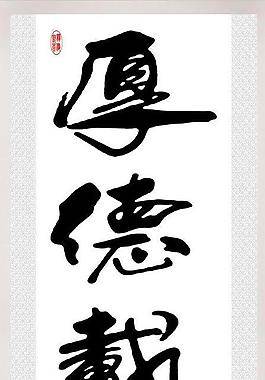 厚
德
載